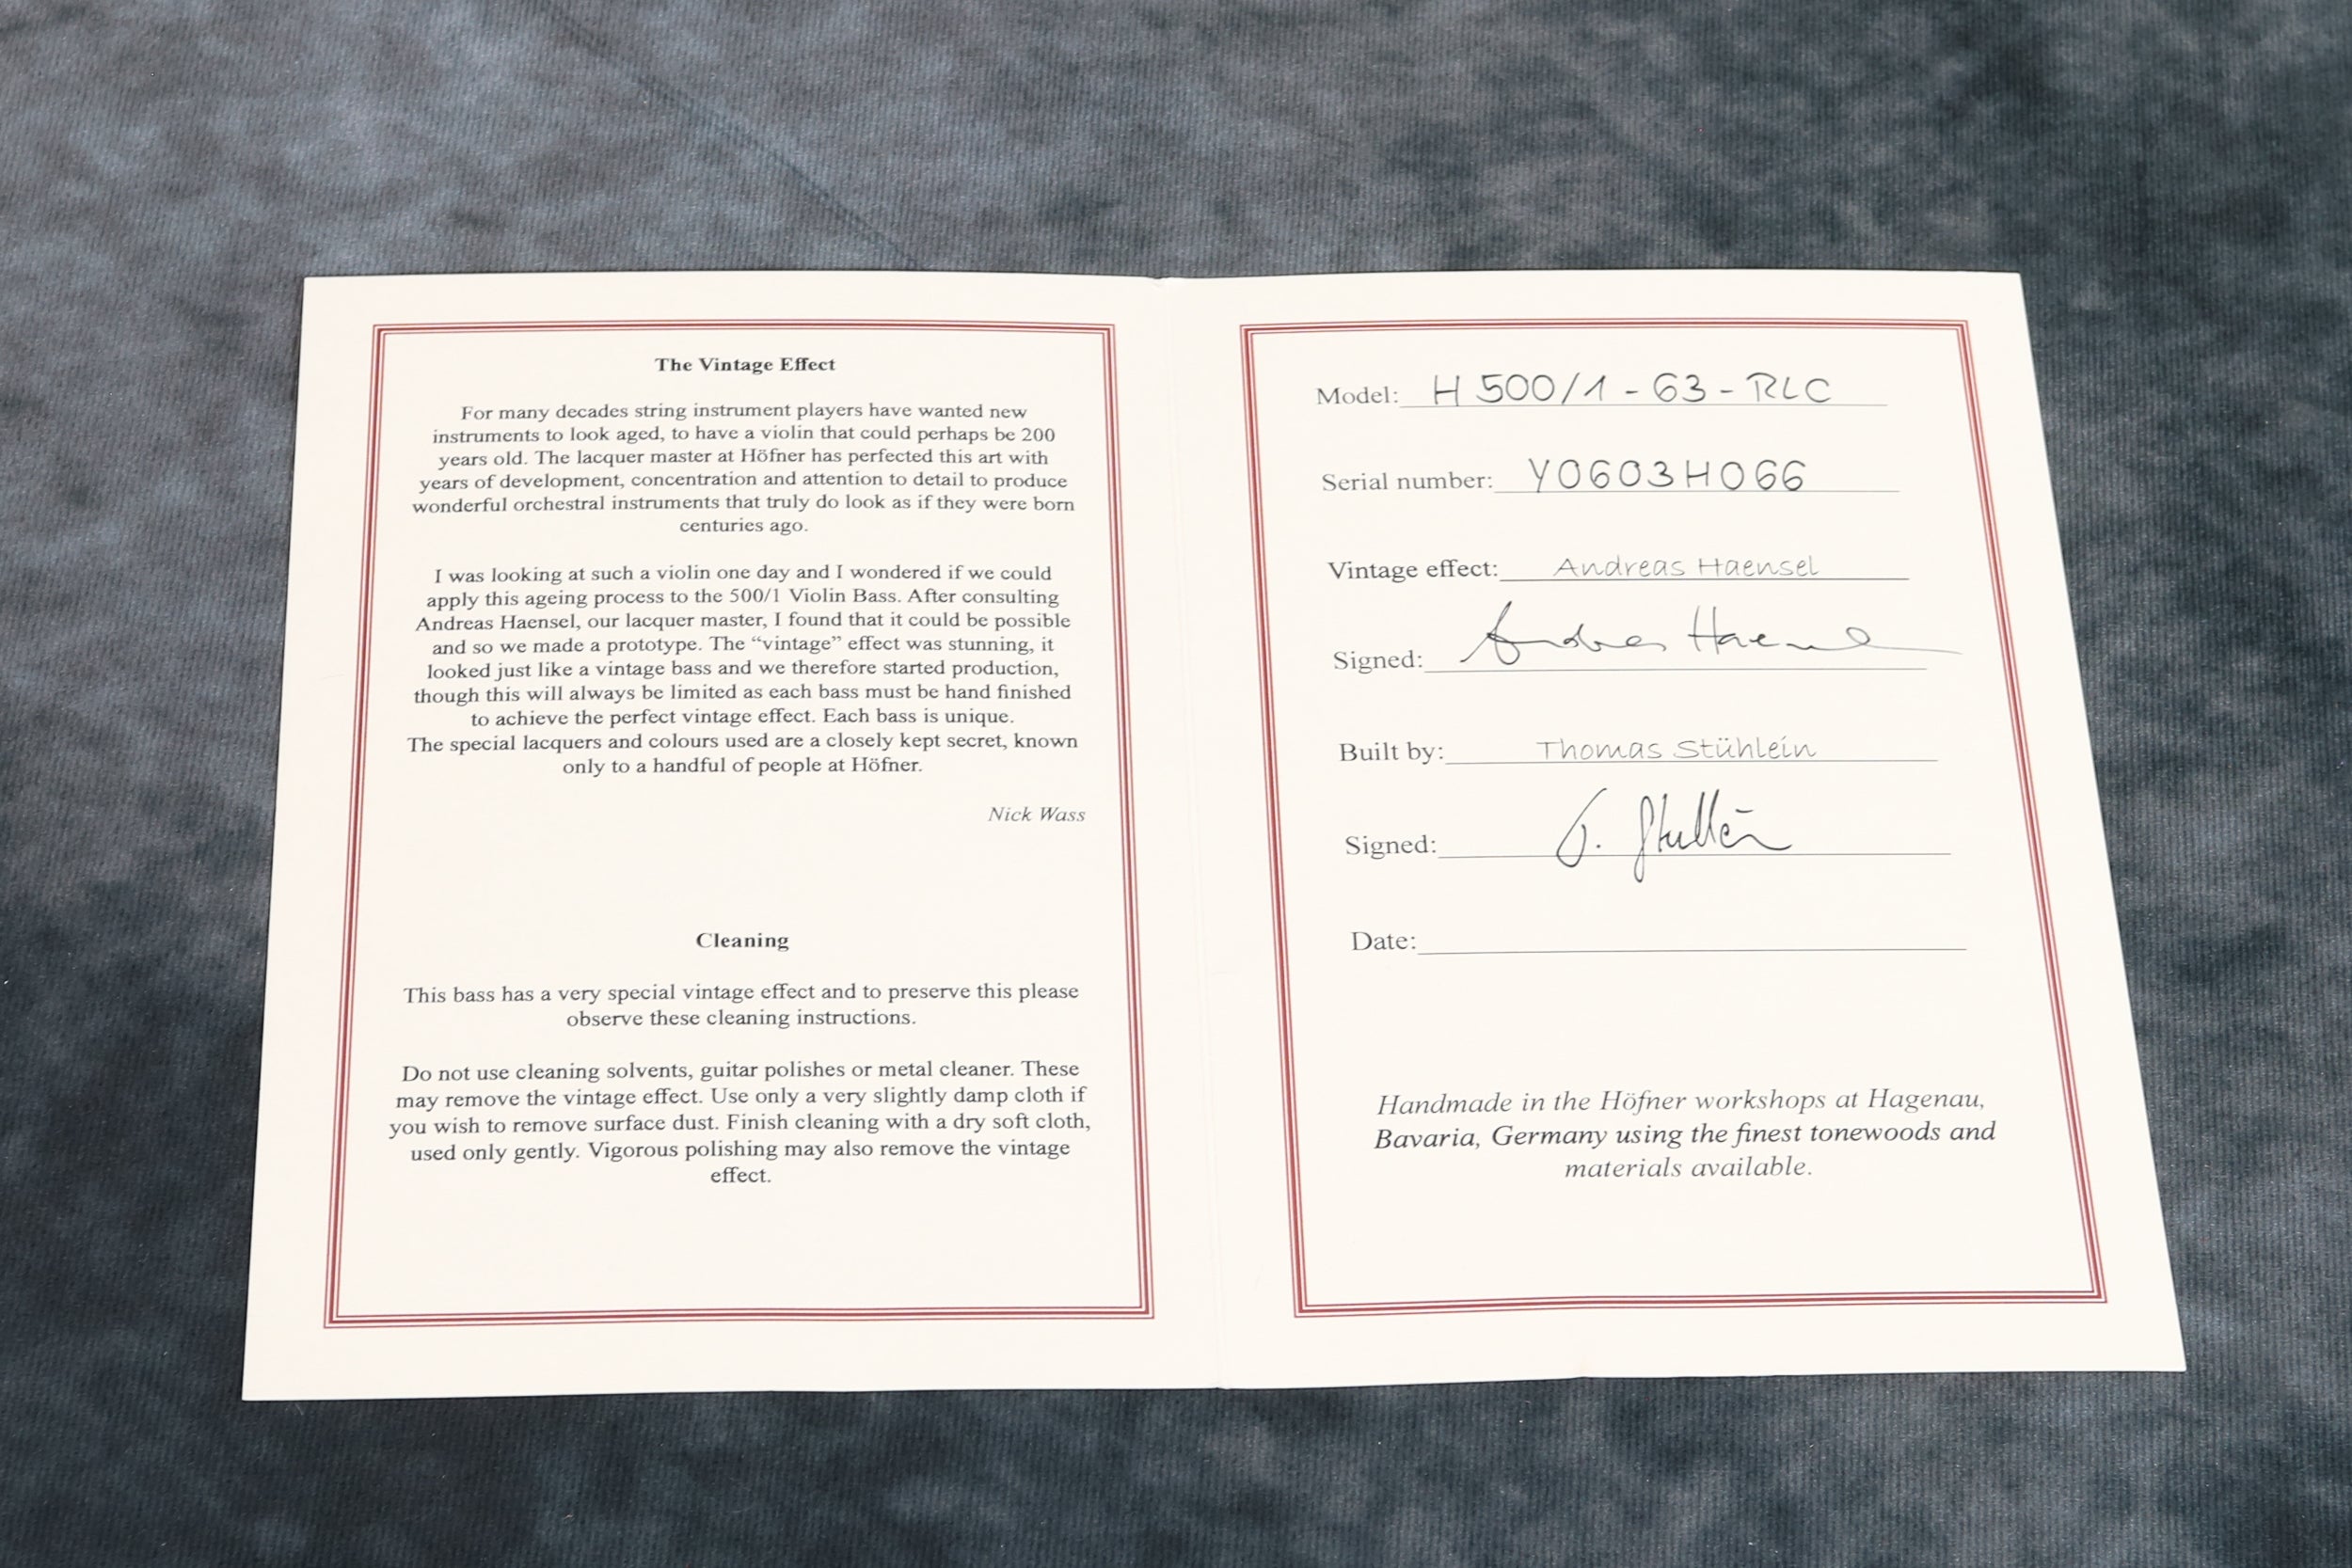 The Vintage Effect
For many decades string instrument players have wanted new
instruments to look aged, to have a violin that could perhaps be 200
years old. The lacquer master at Höfner has perfected this art with
years of development, concentration and attention to detail to produce
wonderful orchestral instruments that truly do look as if they were born
centuries ago.
I was looking at such a violin one day and I wondered if we could
apply this ageing process to the 500/1 Violin Bass. After consulting
Andreas Haensel, our lacquer master, I found that it could be possible
and so we made a prototype. The “vintage” effect was stunning, it
looked just like a vintage bass and we therefore started production,
though this will always be limited as each bass must be hand finished
to achieve the perfect vintage effect. Each bass is unique.
The special lacquers and colours used are a closely kept secret, known
only to a handful of people at Höfner.
Nick Wass
Cleaning
This bass has a very special vintage effect and to preserve this please
observe these cleaning instructions.
Do not use cleaning solvents, guitar polishes or metal cleaner. These
may remove the vintage effect. Use only a very slightly damp cloth if
you wish to remove surface dust. Finish cleaning with a dry soft cloth,
used only gently. Vigorous polishing may also remove the vintage
effect.
Model: H 500/1 - 63 - RLC
Serial number: Y0603H066
Vintage effect: Andreas Haensel
Signed: Andreas Haensel
Built by: Thomas Stühlein
Signed: T. Stühlein
Date:
Handmade in the Höfner workshops at Hagenau,
Bavaria, Germany using the finest tonewoods and
materials available.